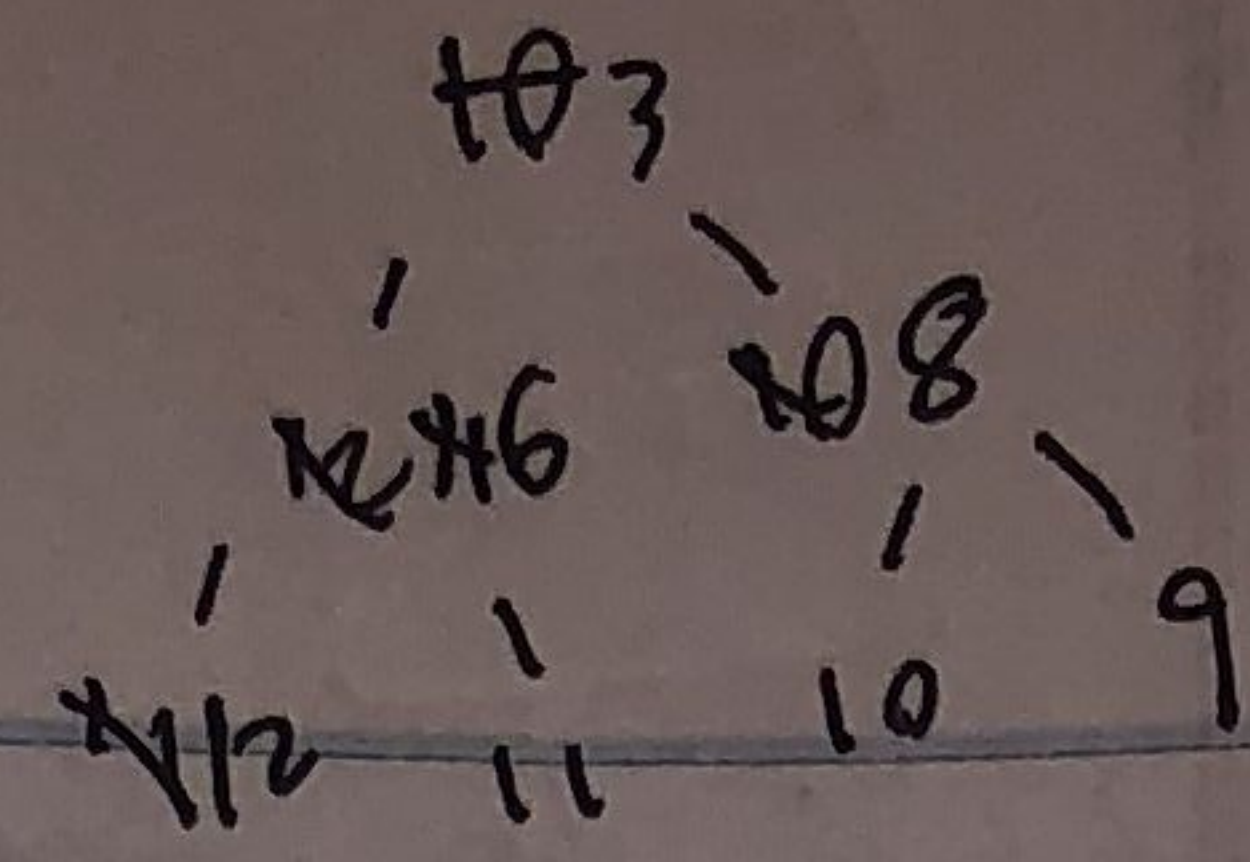 10 3
12 11 6 10 8
11 12 11 10 9